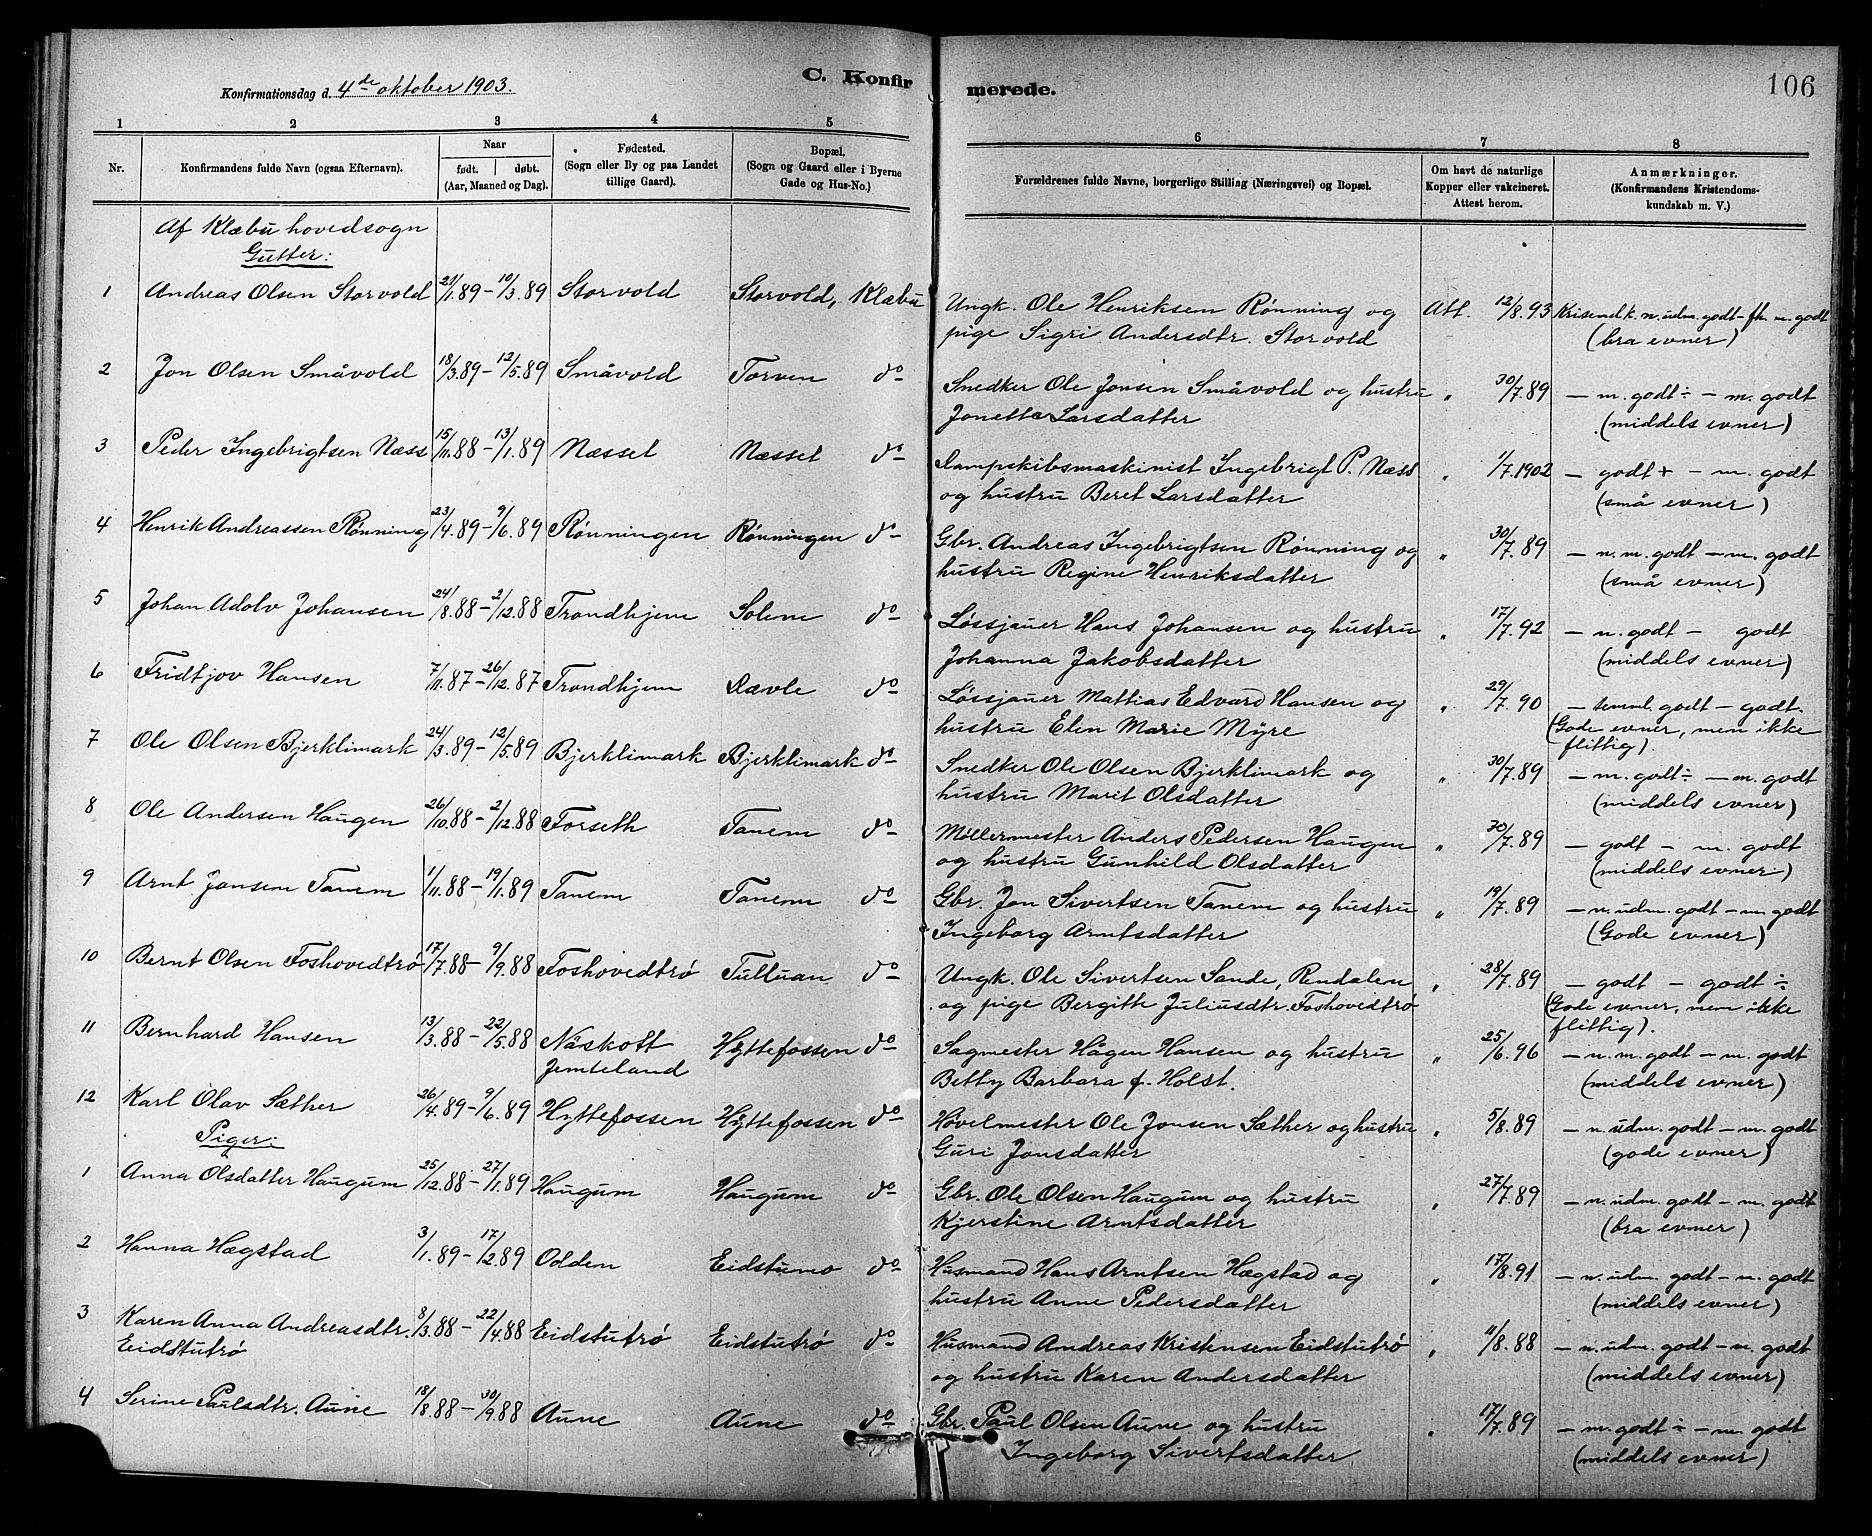 Konfirmationsdag d. 4de oktober 1903.
C. Konfirmerede.
106
1 2 3 4 5 6 7 8
Nr. Konfirmandens fulde Navn (ogsaa Efternavn). Naar født. døbt. (Aar, Maaned og Dag). Fødested. (Sogn eller By og paa Landet tillige Gaard). Bopæl. (Sogn og Gaard eller i Byerne Gade og Hus-No.) Forældrenes fulde Navne, borgerlige Stilling (Næringsvei) og Bopæl. Om havt de naturlige Kopper eller vakcineret. Attest herom. Anmærkninger. (Konfirmandens Kristendomskundskab m. V.)
Af Klæbu hovedsogn
Gutter:
1 Andreas Olsen Storvold 21/1.89 – 10/3.89 Storvold Storvold, Klæbu Ungk. Ole Henriksen Rønning og Att. 12/8.93 Krisendk. n. udm. godt – fh. m. godt
pige Sigri Andersdtr. Storvold (bra evner)
2 Jon Olsen Småvold 18/3.89 – 12/5.89 Småvold Torven do Snedker Ole Jonsen Småvold og hustru " 30/7.89 – m. godt ÷ – m. godt
Jonetta Larsdatter (middels evner)
3 Peder Ingebrigtsen Næss 15/11.88 – 13/1.89 Næsset Næsset do Dampskibsmaskinist Ingebrigt P. Næss " 1/7.1902 – godt + – m. godt
og hustru Beret Larsdatter (små evner)
4 Henrik Andreassen Rønning 23/4.89 – 9/6.89 Rønningen Rønningen do Gbr. Andreas Ingebrigtsen Rønning og " 30/7.89 – n. m. godt – m. godt
hustru Regine Henriksdatter (små evner)
5 Johan Adolv Johansen 24/8.88 – 2/12.88 Trondhjem Solem do Løssjauer Hans Johansen og hustru " 17/7.92 – n. godt – godt
Johanna Jakobsdatter (middels evner)
6 Fridtjov Hansen 7/11.87 – 26/12.87 Trondhjem Dævle do Løssjauer Mattias Edvard Hansen og " 29/7.90 – temml. godt – godt.
hustru Elen Marie Myre (Gode evner, men ikke
flittig).
7 Ole Olsen Bjerklimark 24/3.89 – 12/5.89 Bjerklimark Bjerklimark do Snedker Ole Olsen Bjerklimark og " 30/7.89 – m. godt ÷ – m. godt
hustru Marit Olsdatter (middels evner)
8 Ole Andersen Haugen 26/10.88 – 2/12.88 Forseth Tanem do Møllermester Anders Pedersen Haugen " 30/7.89 – godt – m. godt
og hustru Gunhild Olsdatter (middels evner)
9 Arnt Jonsen Tanem 1/11.88 – 19/1.89 Tanem Tanem do Gbr. Jon Sivertsen Tanem og hustru " 19/7.89 – n. udm. godt – m. godt
Ingeborg Arntsdatter (Gode evner)
10 Bernt Olsen Foshovedtrø 17/7.88 – 9/9.88 Foshovedtrø Tulluan do Ungk. Ole Sivertsen Sande, Rendalen " 28/7.89 – godt – godt ÷
og pige Bergitte Juliusdtr. Foshovedtrø (Gode evner, men ikke
flittig).
11 Bernhard Hansen 13/3.88 – 22/5.88 Näskott Hyttefossen do Sagmester Hågen Hansen og hustru " 25/6.96 – n. m. godt – m. godt
Jemteland Betty Barbara f. Holst. (middels evner)
12 Karl Olav Sæther 26/4.89 – 9/6.89 Hyttefossen Hyttefossen do Høvelmester Ole Jonsen Sæther og hustru " 5/8.89 – n. udm. godt – m. godt
Guri Jonsdatter (gode evner)
Piger:
1 Anna Olsdatter Haugum 25/12.88 – 27/1.89 Haugum Haugum do Gbr. Ole Olsen Haugum og hustru " 27/7.89 – n. udm. godt – m. godt
Kjerstine Arntsdatter (bra evner)
2 Hanna Hægstad 3/1.89 – 17/2.89 Odden Eidstumo do Husmand Hans Arntsen Hægstad og " 17/8.91 – n. udm. godt – n. godt
hustru Anne Pedersdatter (middels evner)
3 Karen Anna Andreasdtr. 8/3.88 – 22/4.88 Eidstutrø Eidstutrø do Husmand Andreas Kristensen Eidstutrø " 11/8.88 – n. udm. godt – n. godt
Eidstutrø og hustru Karen Andersdatter (middels evner)
4 Serine Paulsdtr. Aune 18/8.88 – 30/9.88 Aune Aune do Gbr. Paul Olsen Aune og hustru " 17/7.89 – m. godt ÷ – m. godt
Ingeborg Sivertsdatter (middels evner)